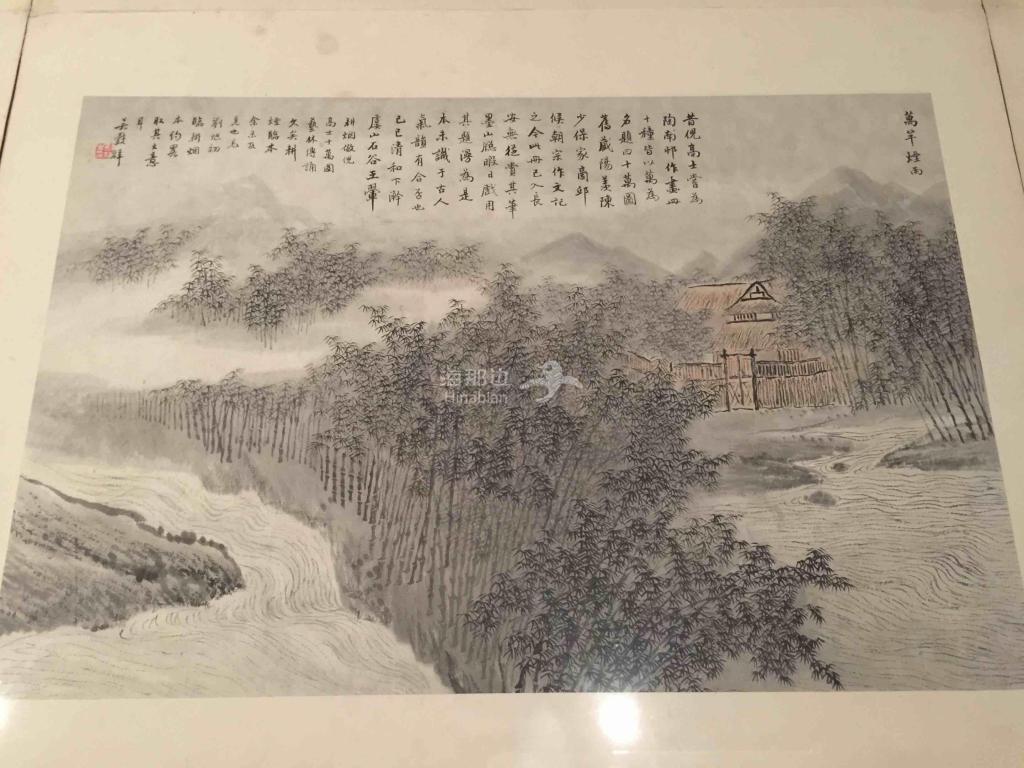 萬竿煙雨
昔倪高士嘗為
陶南邨作畫冊
十種皆以萬為
名題曰十萬圖
舊藏陽羨陳
少保家商邱
侯朝宗作文記
之今此冊已入長
安無從賞其筆
墨山牕暇日戲用
其題漫為是
本未識于古人
氣韻有合否也
己巳清和下澣
虞山石谷王翬
耕烟倣倪
高士十萬圖
藝林傳誦
久矣耕
煙臨本
余亦及
見也為
劉旭初
臨耕烟
本約畧
取其大意
耳
海那边
Hinabian